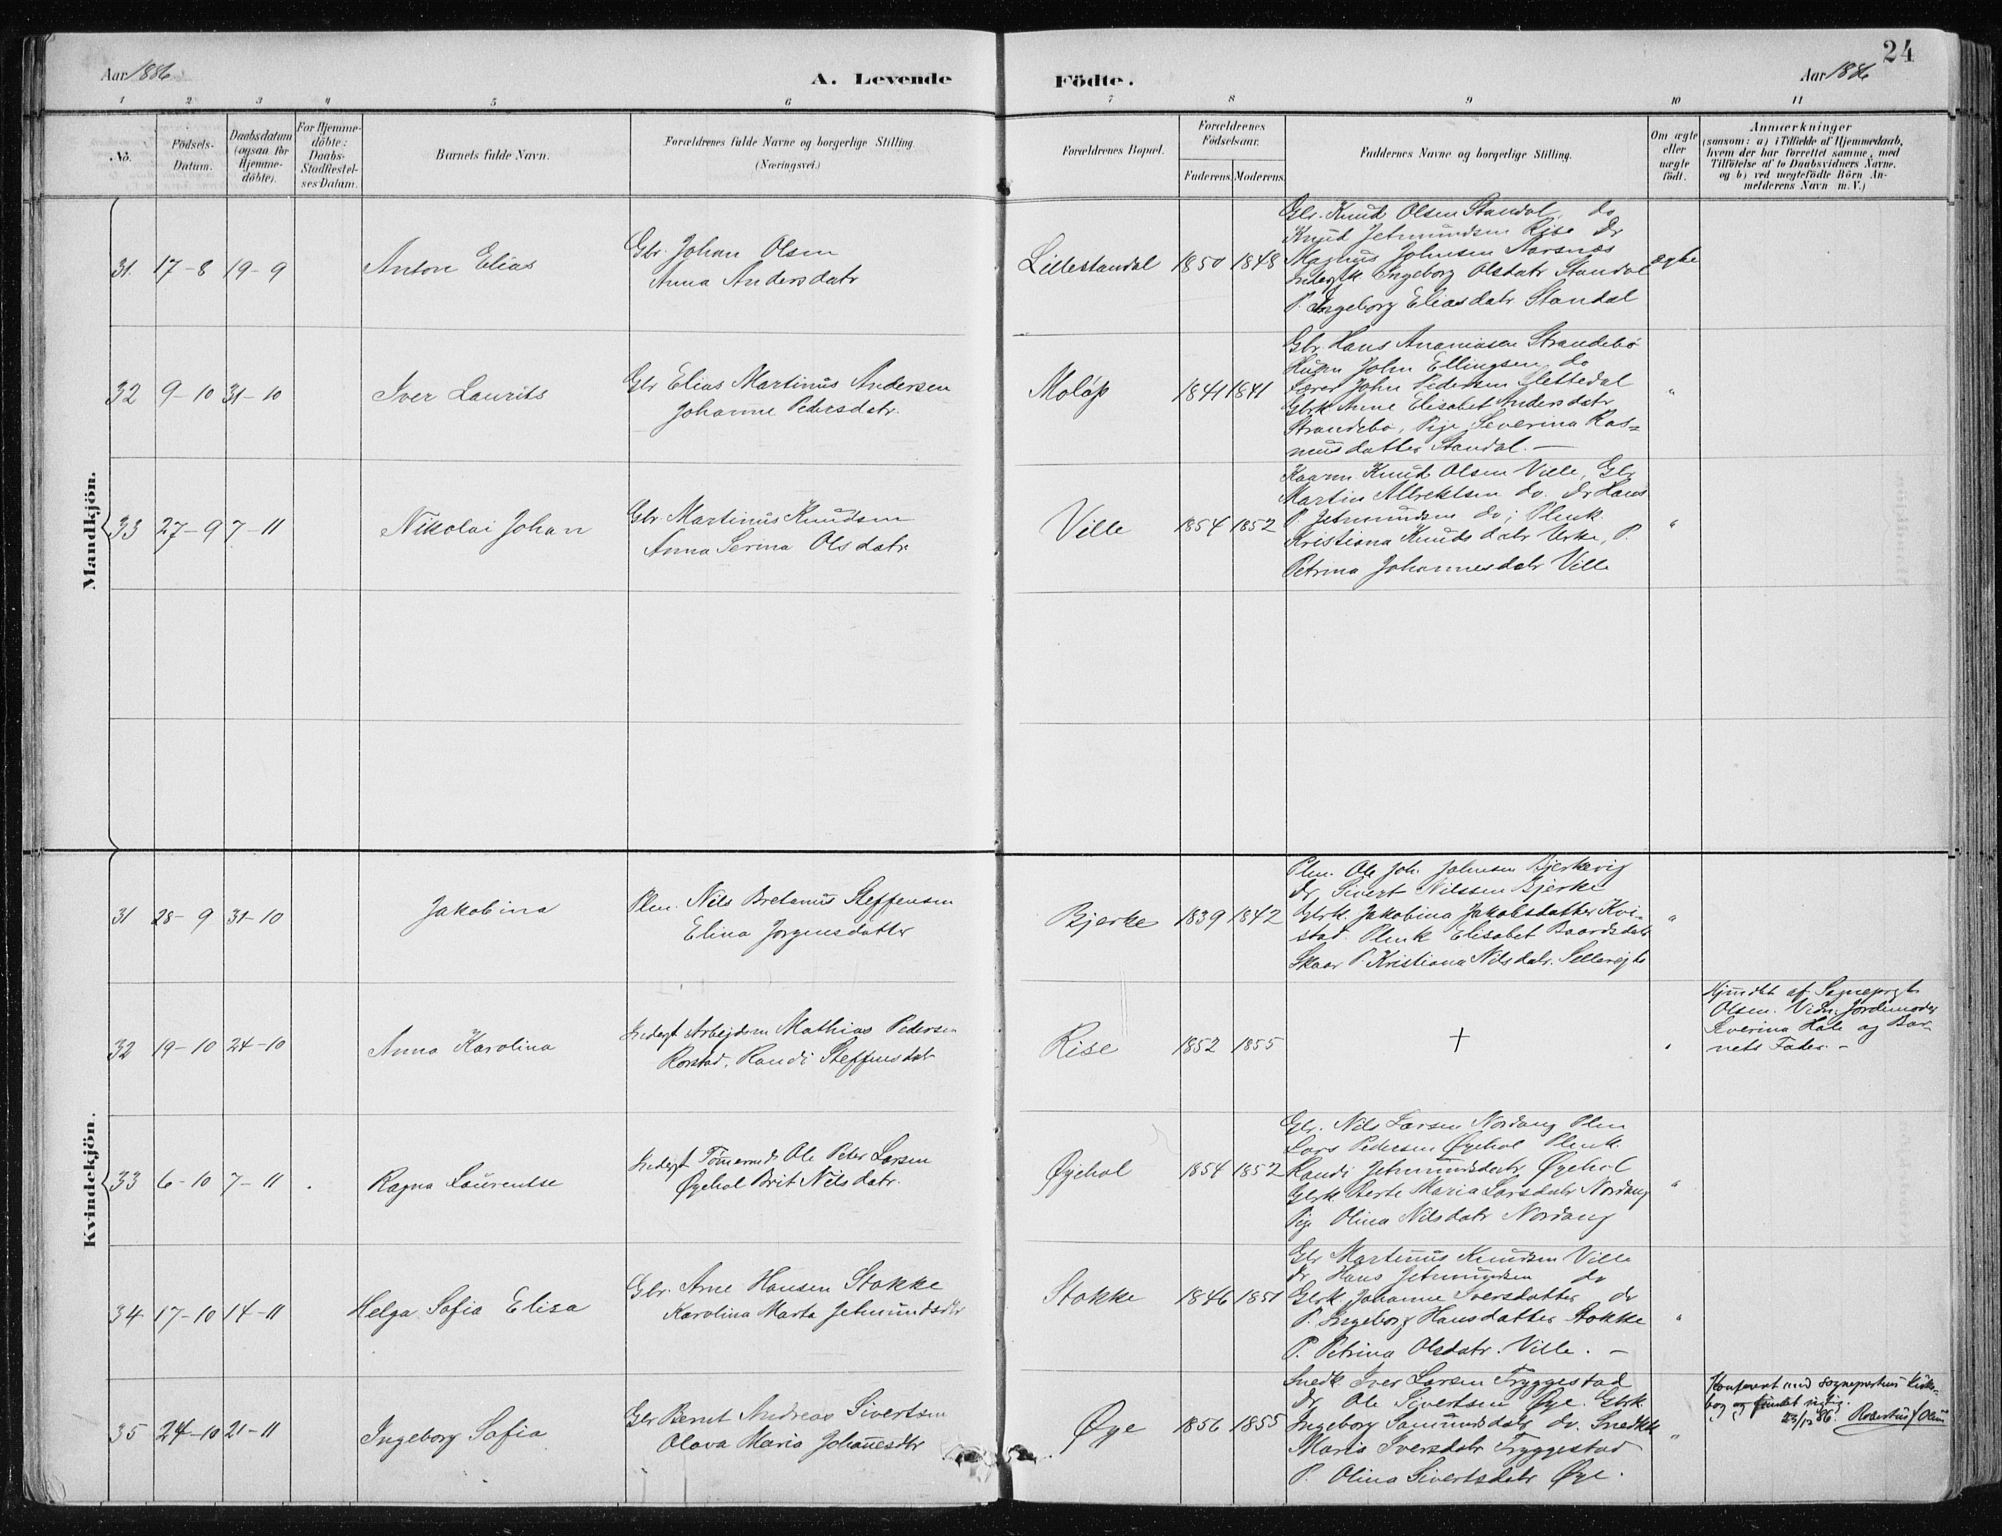 24
Aar 1886
A. Levende
Födte.
Aar 1886
1 2 3 4 5 6 7 8 9 10 11
No.
Födsels-
Datum.
Daabsdatum
(ogsaa for
Hjemme-
döbte).
For Hjemme-
döbte:
Daabs-
Stadfæstel-
ses-Datum.
Barnets fulde Navn.
Forældrenes fulde Navne og borgerlige Stilling
(Næringsvei.)
Forældrenes Bopæl.
Forældrenes
Födselsaar.
Faderens. Moderens.
Faddernes Navne og borgerlige Stilling.
Om ægte
eller
uægte
födt.
Anmærkninger
(saasom: a) i Tilfælde af Hjemmedaab,
hvem der har forrettet samme, med
Tilföielse af to Daabsvidners Navne.
og b) ved uægtefödte Börn An-
melderens Navn m. V.)
Mandkjön.
31. 17-8 19-9
Anton Elias
Gbr. Johan Olsen
Anna Andersdatr
Lillestandal
1850 1848
Gbr. Knud Olsen Standal, do
Knud Jetmundsen Rise Dr
Magnus Johnsen Aarsnes
Inderstk Ingeborg Olsdatr Standal
P. Ingeborg Eliasdatr Standal
ægte
32 9-10 31-10
Iver Laurits
Gbr Elias Martinus Andersen
Johanne Pedersdatr.
Moløp
1841 1841
Gbr. Hans Ananiasen Strandebø
Husm John Ellingsen do
Lærer John Pedersen Slettedal
Gbrk Anne Elisabet Andersdatr
Strandebø, Pige Severina Ras=
musdatter Standal. —
"
33 27-9 7-11
Nikolai Johan
Gbr. Martinus Knudsen
Anna Serina Olsdatr
Ville
1854 1852
Kaarm Knud Olsen Ville, Gbr
Martin Albrektsen do. Dr Hans
P. Jetmundsen do; Plenk.
Kristiana Knudsdatr Urke, P.
Petrina Johannesdatr Ville
"
Kvindekjön.
31 28-9 31-10
Jakobina
Plm. Nils Bretanus Steffensen
Elina Jørgensdatter
Bjerke
1839 1842
Plm. Ole Joh. Johnsen Bjerkevig
Dr. Sivert Nilssen Bjerke
Gbrk. Jakobina Jakobsdatter Kvi-
stad. Plenk Elisabet Baardsdatr
Skaar P. Kristiana Nilsdatr.
"
32 19-10 24-10
Anna Karolina
Inderst Arbejdsm Mathias Pedersen
Rorstad, Randi Steffensdatr
Rise
1852 1855
+
"
Hjmdbt af Sogneprst
Olsen. Vidn: Jordemoder
Severina Hole og Bar-
nets Fader. -
33 6-10 7-11 .
Ragna Laurentse
Inderst Tømermd Ole Peter Larsen
Øyehol Brit Nilsdatr.
Øyehol
1854 1852
Gbr. Nils Larsen Nordang Plm
Lars Pedersen Øyehol Plenk.
Randi Jetmundsdatr, Øyehol
Gbrk Berte Maria Larsdatr Nordang
Pige Olina Nilsdatr Nordang
"
34 17-10 14-11
Helga Sofia Elisa
Gbr. Arne Hansen Stokke
Karolina Marta Jetmundsdtr
Stokke
1846 1851
Gbr Martinus Knudsen Ville
Dr. Hans Jetmundsen do
Gbrk. Johanne Iversdatter dr
P. Ingeborg Hansdatter Stokke
P. Petrina Olsdatr. Ville. —
"
35 24-10 21-11
Ingeborg Sofia
Gbr Bernt Andreas Sivertsen
Olava Maria Johannesdtr
Øye
1856 1855
Snedk. Iver Larsen Tryggestad
Dr. Ole Sivertsen Øye. Gbrk
Ingeborg Samundsdatr do. Snedkk
Maria Iversdatr Tryggestad
P. Olina Sivertsdatr Øye.
"
Konfereret med Sognepræstens Kirke-
bog og fundet rigtig.